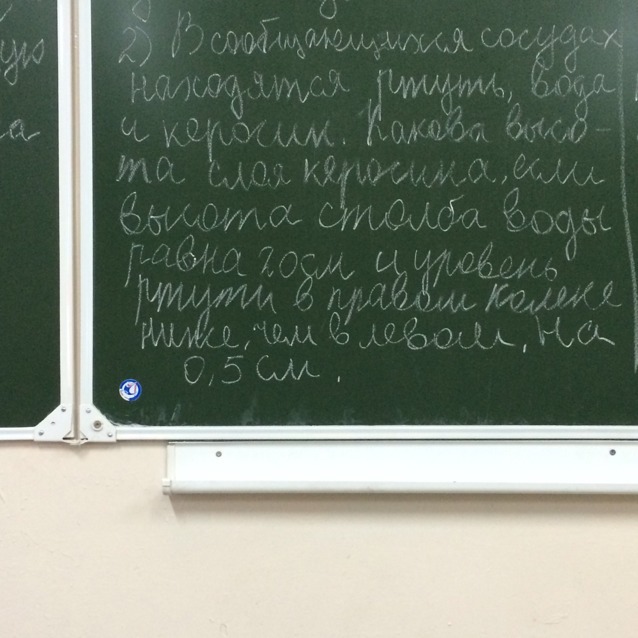 2) В сообщающихся сосудах
находятся ртуть, вода
и керосин. Какова высо-
та слоя керосина, если
высота столба воды
равна 20 см и уровень
ртути в правом колене
ниже, чем в левом, на
0,5 см.